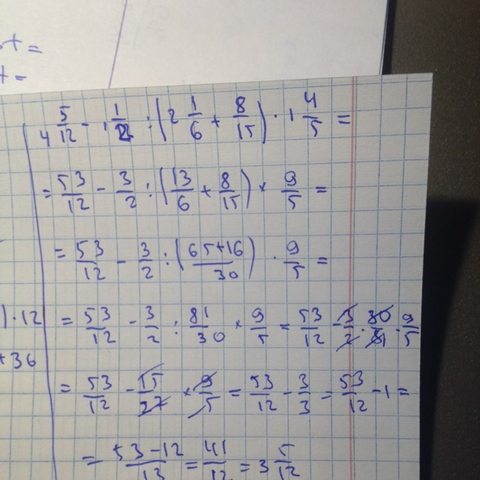 t =
t =
4 5/12 - 1 1/2 : (2 1/6 + 8/15) · 1 4/5 =
= 53/12 - 3/2 : (13/6 + 8/15) × 9/5 =
= 53/12 - 3/2 : (65+16/30) · 9/5 =
) · 12
= 53/12 - 3/2 : 81/30 × 9/5 = 53/12 - 3/2 · 30/81 · 9/5
+36
= 53/12 - 15/27 × 9/5 = 53/12 - 3/3 = 53/12 - 1 =
= 53-12/13 = 41/12 = 3 5/12